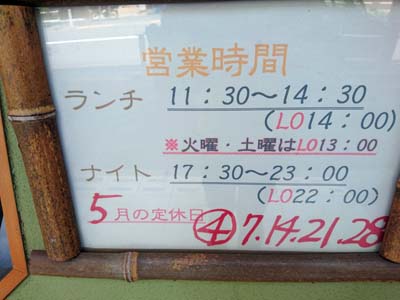 営業時間
ランチ 11:30〜14:30
(LO14:00)
※火曜・土曜はLO13:00
ナイト 17:30〜23:00
(LO22:00)
5月の定休日 ④7.14.21.28